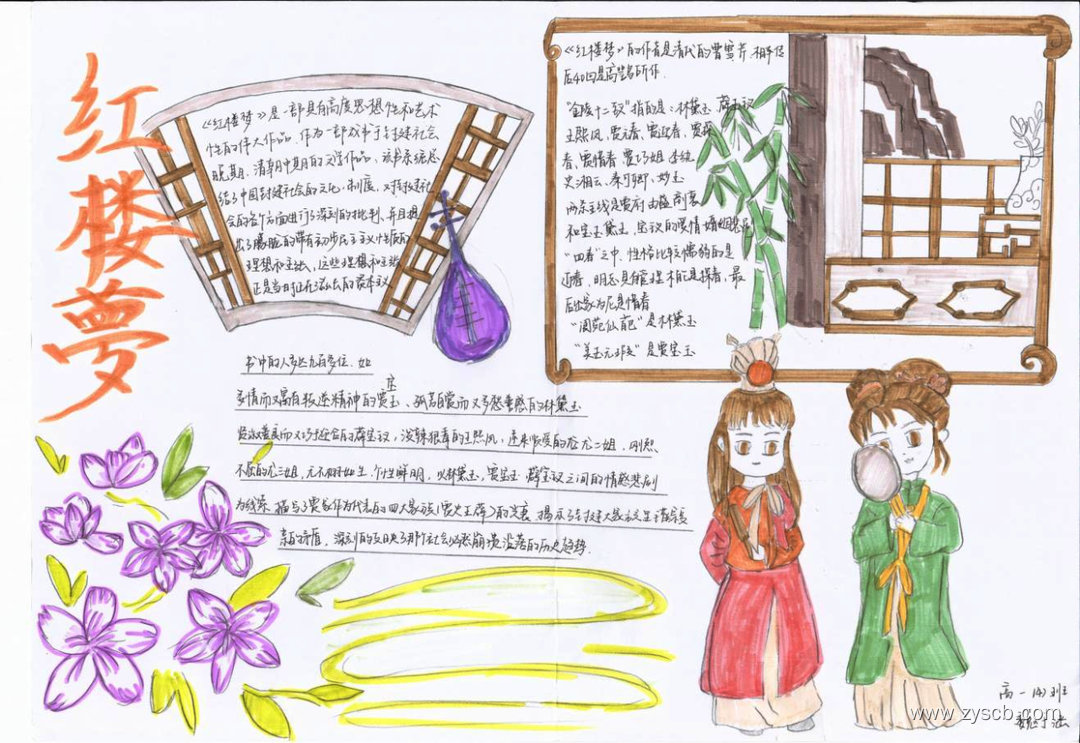 红楼梦
《红楼梦》是一部具有高度思想性和艺术
性的伟大作品，作为一部成书于封建社会
晚期，清朝中期的文学作品，该书系统总
结了中国封建社会的文化、制度，对封建社
会的各个方面进行了深刻的批判，并且提
出了朦胧的带有初步民主主义性质的
理想和主张，这些理想和主张
正是当时正在滋长的资本主义
《红楼梦》的作者是清代的曹雪芹，相传
后40回是高鹗所作.
"金陵十二钗"指的是：林黛玉 薛宝钗
王熙凤 贾元春、贾迎春、贾探
春、贾惜春 贾巧姐 李纨
史湘云、秦可卿、妙玉
两条主线是贾府由盛而衰
和宝玉黛玉、宝钗的爱情婚姻悲剧
"四春"之中，性格比较懦弱的是
迎春，明志具有管理才能是探春，最
后出家为尼是惜春
"阆苑仙葩"是林黛玉
"美玉无瑕"是贾宝玉
书中的人多达九百多位，如
多情而又富有叛逆精神的贾宝玉、孤芳自赏而又多愁善感的林黛玉
贤淑温良而又巧于迎合的薛宝钗，泼辣狠毒的王熙凤，
不屈的尤三姐，无不栩栩如生，个性鲜明，以林黛玉，贾宝玉 薛宝钗之间的情感悲剧
为线索，描写了贾家作为代表的四大家族（贾史王薛）的兴衰，揭示了封建大家族
深刻的反映了那个社会必然崩溃没落的历史趋势.
高一(4)班
www.zyscb.com